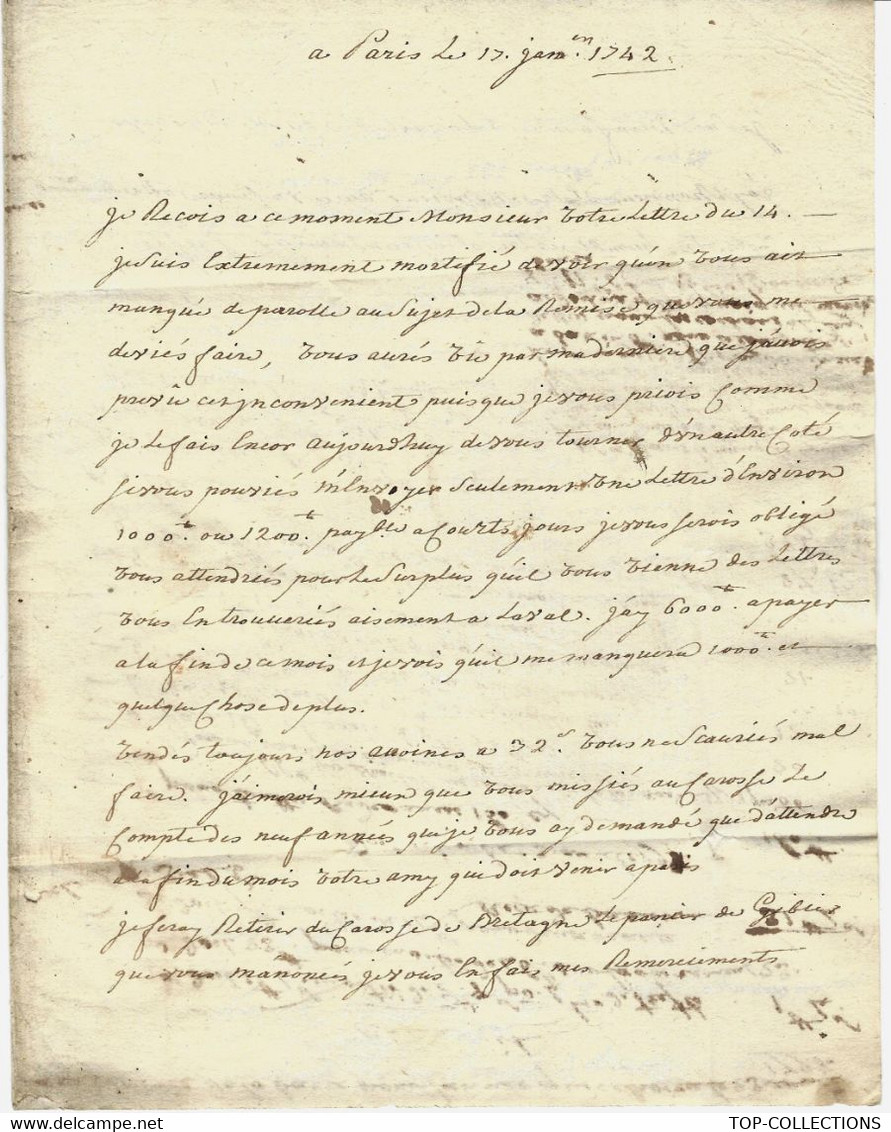 a Paris le 17. jan.en 1742.
je Recois a ce moment Monsieur Votre Lettre du 14. —
je suis Extremement mortifié de voir qu'on Vous ait
manqué de parolle au Sujet de la Remise que vous me
deviés faire, Vous aurés Vû par ma derniere que j'auois
prevû cet jnconvenient puisque je vous priois Comme
je le fais Encor aujourdhuy de vous tourner d'un autre Coté
si vous pouviés m'Envoyer Seulement Une Lettre d'Environ
1000tt. ou 1200tt. payble a Courts jours je vous serois obligé
Vous attendriés pour le Surplus qu'il Vous Vienne des Lettres
Vous En trouveriés aisement a Laval. j'ay 6000tt. a payer
a la fin de ce mois et je vois qu'il me manquera 1000tt. et
quelque Chose de plus.
Vendés toujours nos avoines a 32s. Vous ne Scauriés mal
faire. j'aimerois mieux que Vous missiés au Carosse Le
Compte des neuf années que je Vous ay demandé que d'attendre
a la fin du mois Votre amy qui doit venir a paris
je feray Retirer du Carosse de Bretagne le panier de Gibier
que vous m'anoncés je vous En fais mes Remerciments
TOP-COLLECTIONS